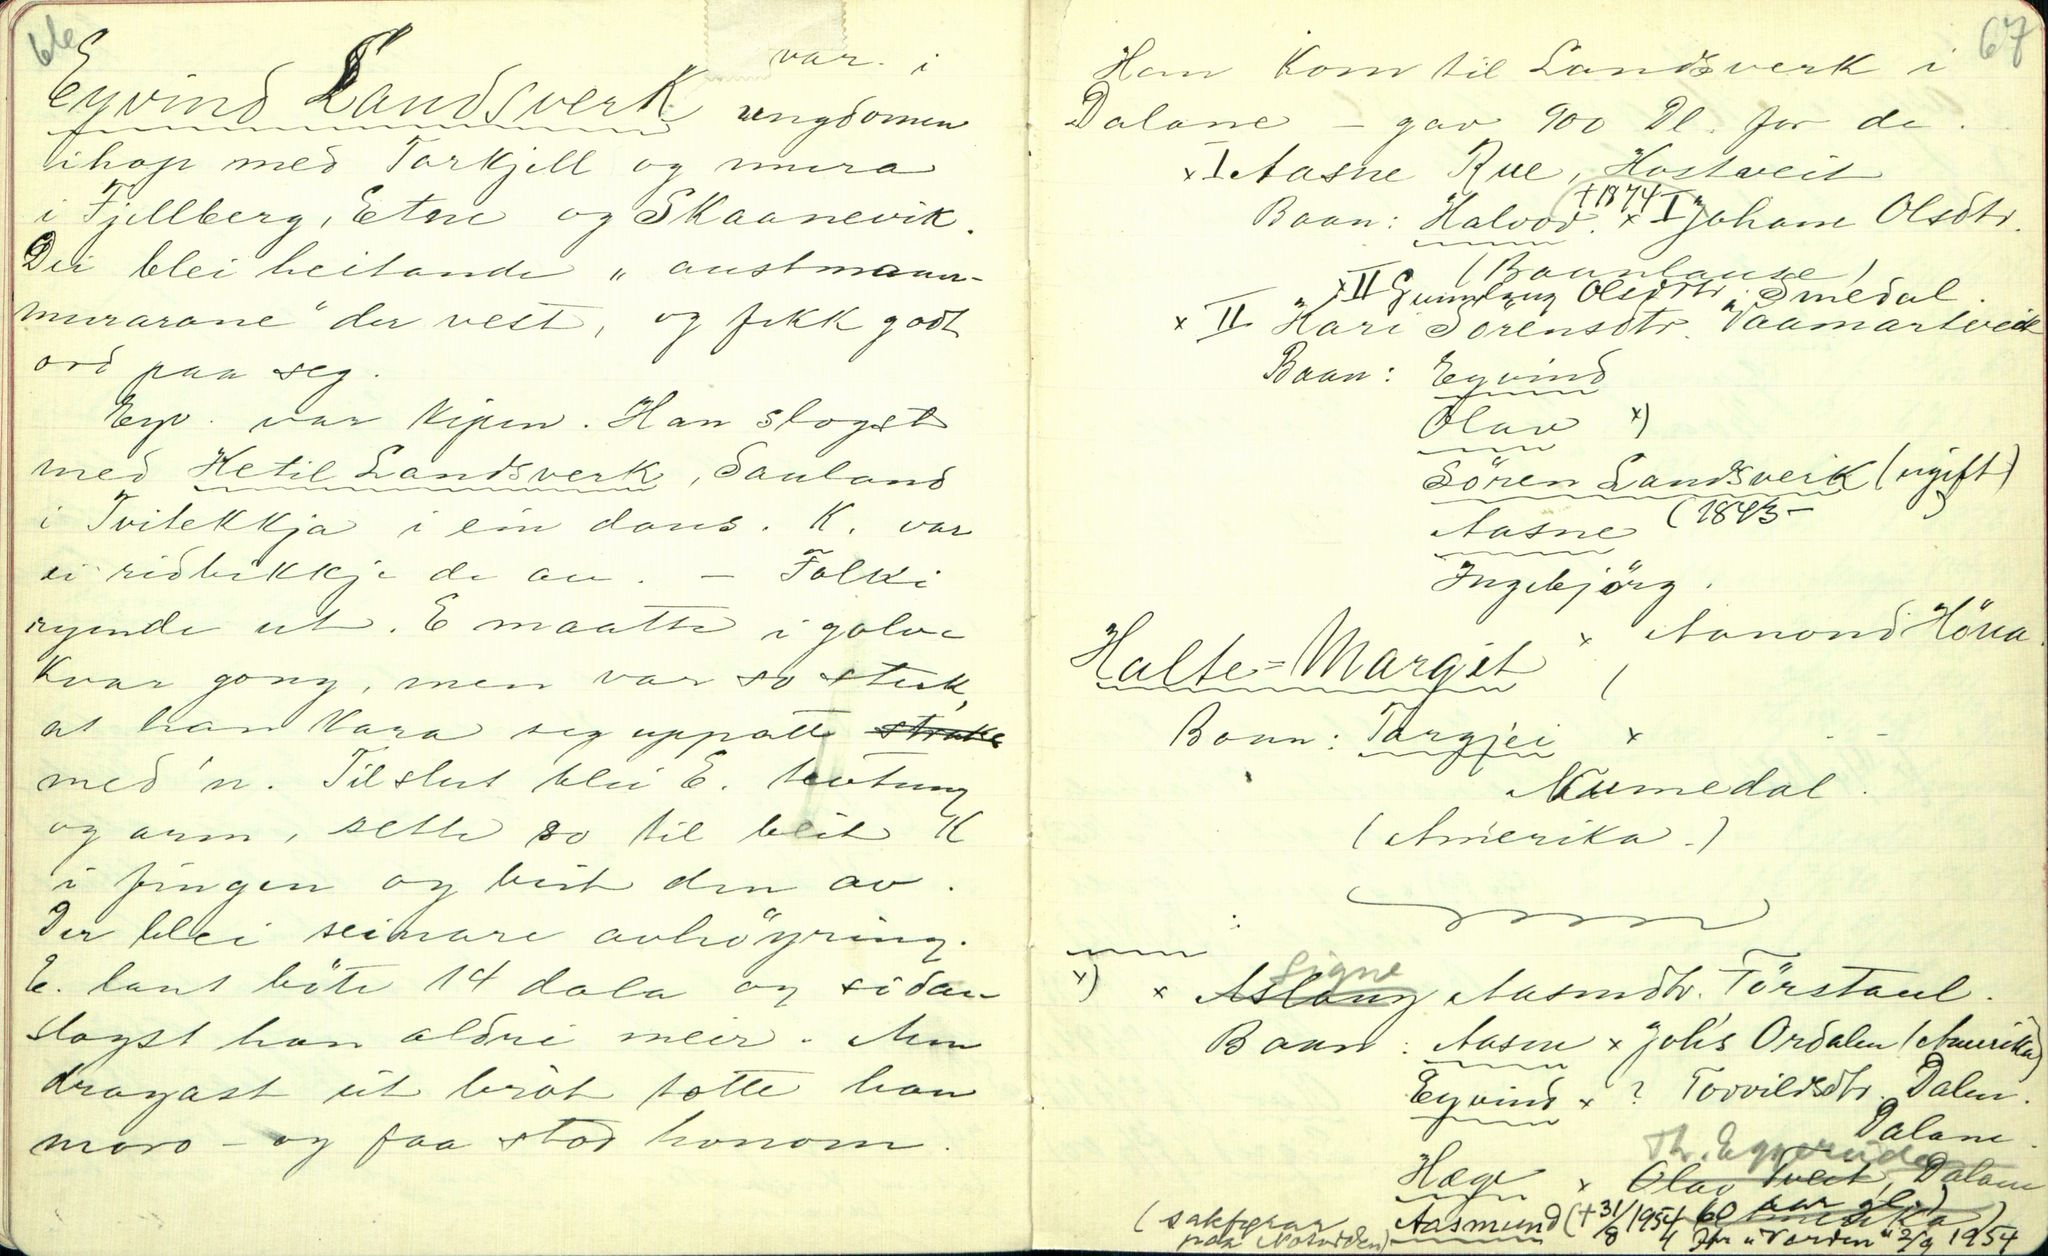 66
Eyvind Landsverk var i
ungdomen
ihop med Torkjell og mura
i Fjellberg, Etne og Skaanevik.
Dei blei heitande "austmann-
murarane" der vest, og fekk godt
ord paa seg.
Eyv. var kipen. Han slogst
med Ketil Landsverk, Sauland
i Tvitekkja i ein dans. K. var
ei ridbikkje de au. - Folki
rymde ut. E maatte i golve
kvar gong, men var so sterk,
at han kara seg uppatte strakse
med'n. Tilslut blei E. tevtung
og arm, sette so til beit K
i fingen og beit den av.
Der blei seinare avhöyring.
E. laut böte 14 dala og sidan
slogst han aldri meir. Men
dragast ut bröt totte han
moro - og faa stod honom.
67
Han kom til Landsverk i
Dalane - gav 900 Dl. for de.
x I Aasne Rue, Hostveit
Baan: Halvor. †1874 x I Johane Olsdtr.
(Baanlause)
x II Gunnlaug Olsdtr. Smedal.
x II Kari Sörensdtr. Vaamarteveit
Baan: Eyvind
Olav x)
Sören Landsverk (ugift)
(1843-)
Aasne
Ingebjörg.
Halte-Margit x Aanond Höua.
(
Baan: Targjei x
Numedal.
(Amerika.)
Signe
x) x Aslaug Aasmdtr. Törstaul.
Baan: Aasne x Johs Ordalen (Amerika)
Eyvind x ? Torvildsdtr. Dalen.
Dalane.
Th. Eggerude
Hæge x Olav Tveit, Dalane
(Amerika)
(sakfyrar Aasmund († 31/8 1954 60 aar gl.)
paa Notodden) "Varden" 2/9 1954